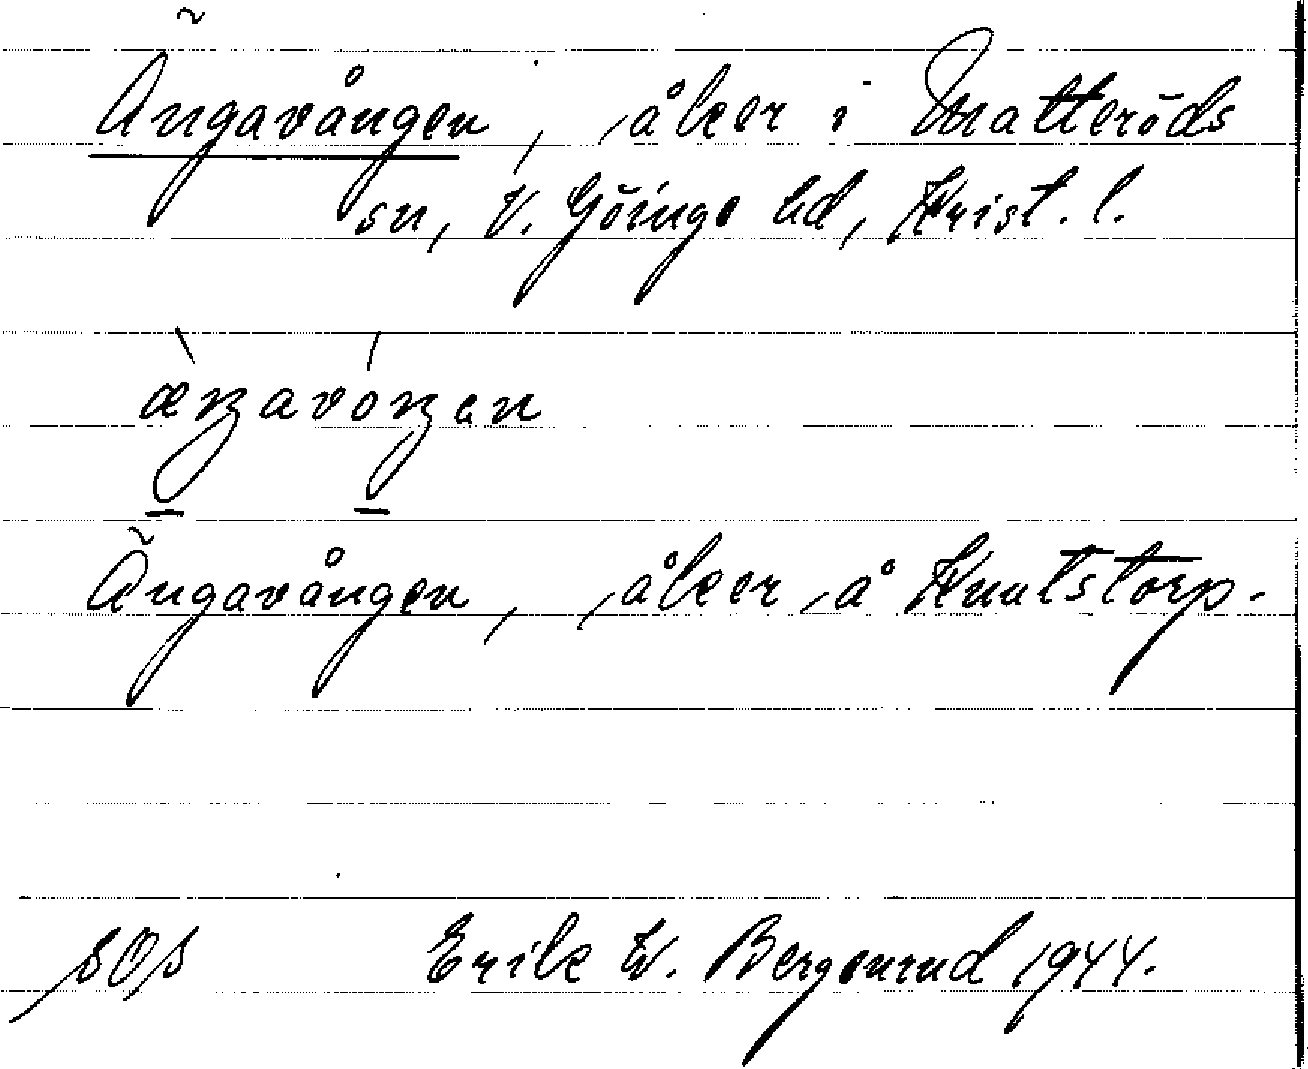 Ängavången, åker i Matteröds
sn, V. Göinge hd, Krist. l.
æ̀ŋavóŋen
Ängavången, åker å Knutstorp.
SOS Erik W. Bergenrud 1944.